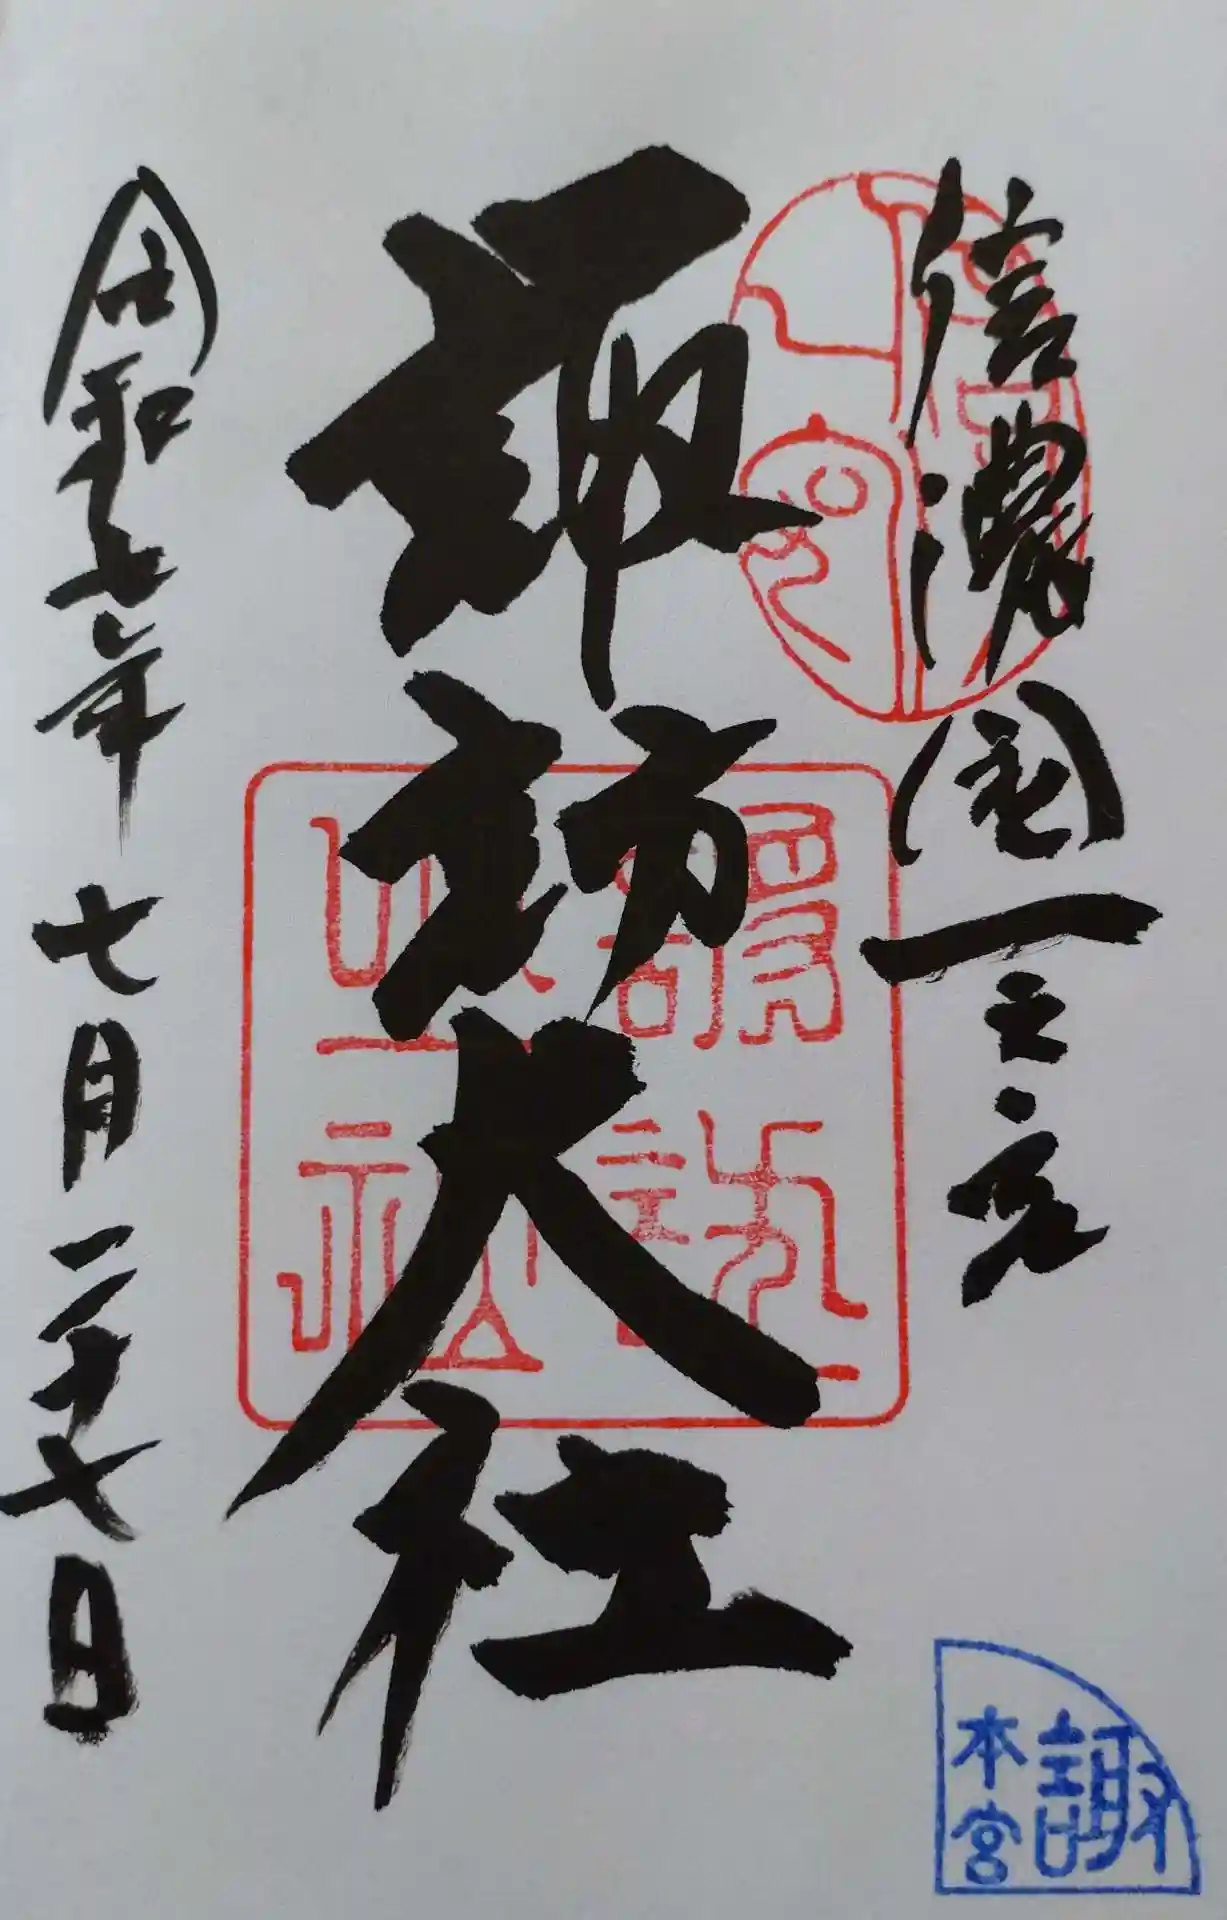 信濃國一之宮
諏訪大社
令和七年七月二十七日
諏
本宮